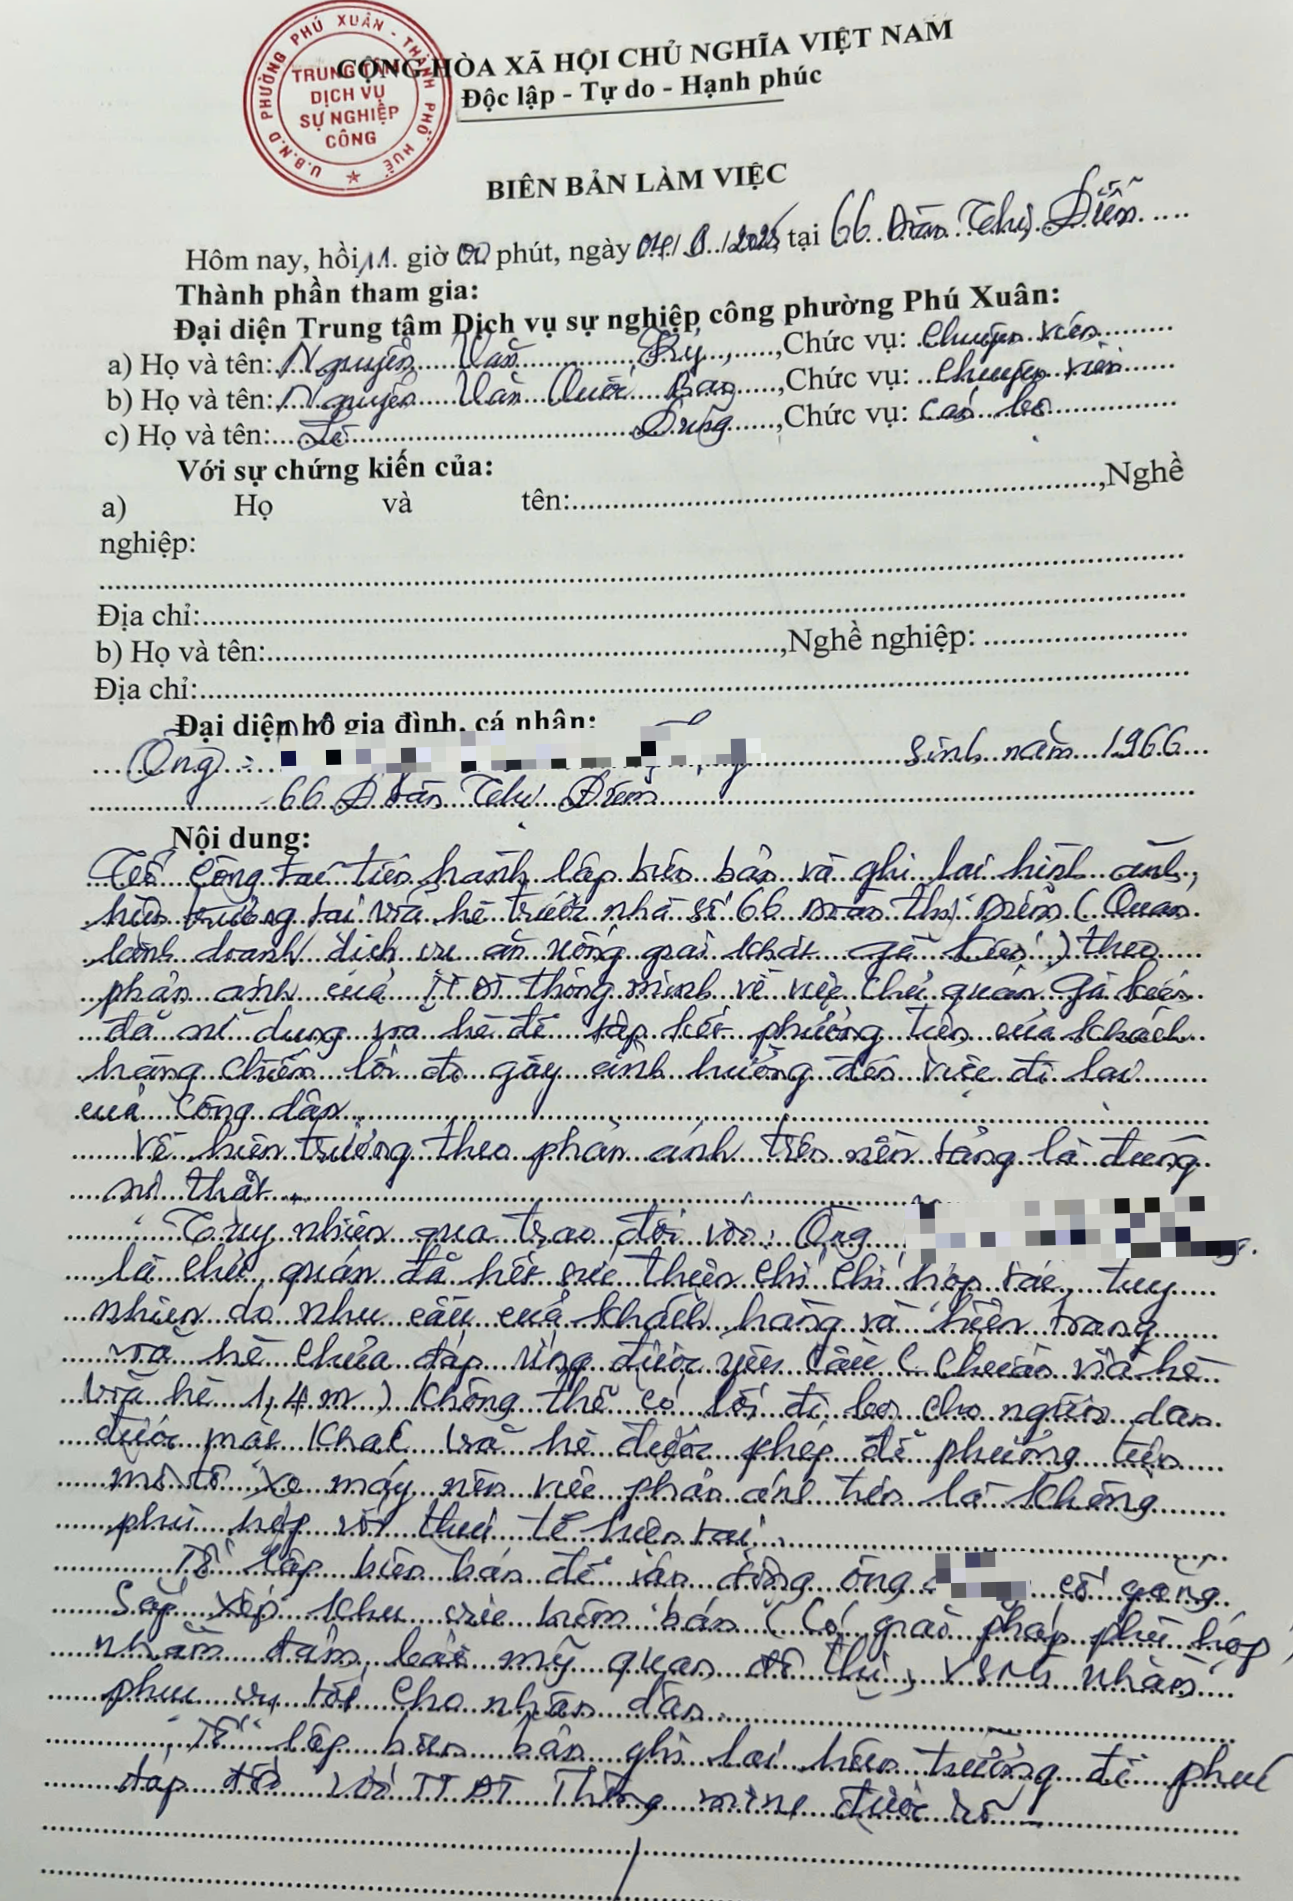 U.B.N.D PHƯỜNG PHÚ XUÂN - THÀNH PHỐ HUẾ
TRUNG TÂM
DỊCH VỤ
SỰ NGHIỆP
CÔNG
CỘNG HÒA XÃ HỘI CHỦ NGHĨA VIỆT NAM
Độc lập - Tự do - Hạnh phúc
BIÊN BẢN LÀM VIỆC
Hôm nay, hồi 11 giờ 00 phút, ngày 04/ /2025 tại 66 Đoàn Thị Điểm
Thành phần tham gia:
Đại diện Trung tâm Dịch vụ sự nghiệp công phường Phú Xuân:
a) Họ và tên: Nguyễn Văn , Chức vụ: Chuyên viên
b) Họ và tên: Nguyễn Văn Quốc , Chức vụ: Chuyên viên
c) Họ và tên: Lê Dũng, Chức vụ: Cán bộ
Với sự chứng kiến của:
a) Họ và tên:, Nghề
nghiệp:
Địa chỉ:
b) Họ và tên:, Nghề nghiệp:
Địa chỉ:
Đại diện hộ gia đình, cá nhân:
Ông: sinh năm 1966
66 Đoàn Thị Điểm
Nội dung:
Tổ công tác tiến hành lập biên bản và ghi lại hình ảnh,
hiện trường tại vỉa hè trước nhà số 66 Đoàn Thị Điểm (Quán
kinh doanh dịch vụ ăn uống giải khát ) theo
phản ánh của TTĐT thông minh về việc chủ quán
đã sử dụng vỉa hè để tập kết phương tiện của khách
hàng chiếm lối đi gây ảnh hưởng đến việc đi lại
của công dân
Về hiện trường theo phản ánh trên nền tảng là đúng
sự thật.
Tuy nhiên qua trao đổi với: Ông
là chủ quán đã hết sức thiện chí hợp tác, tuy
nhiên do nhu cầu của khách hàng và hiện trạng
vỉa hè chưa đáp ứng được yêu cầu ( chuẩn vỉa hè
vỉa hè 1,4m ) không thể có lối đi bộ cho người dân
được mặt khác vỉa hè được phép để phương tiện
mô tô xe máy nên việc phản ánh trên là không
phù hợp với thực tế hiện tại.
Tổ lập biên bản để vận động ông cố gắng
sắp xếp khu vực buôn bán (Có giải pháp phù hợp)
nhằm đảm bảo mỹ quan đô thị, VSMT nhằm
phục vụ tốt cho nhân dân.
Tổ lập biên bản ghi lại hiện trường để phúc
đáp đối với TTĐT Thông minh được rõ